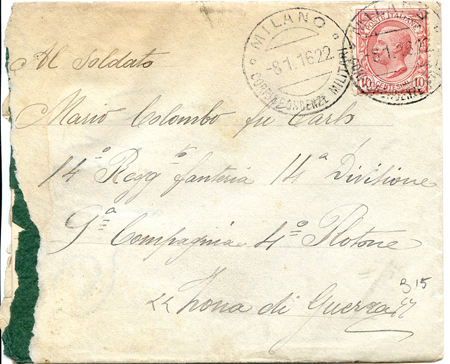 MILANO
-8.1.16 22
CORRISPONDENZE MILITARI
POSTE ITALIANE
10 CENTESIMI 10
Al Soldato
Mario Colombo fu Carlo
14° Regg fanteria 14ª Divisione
9ª Compagnia 4° Plotone
"Zona di Guerra"